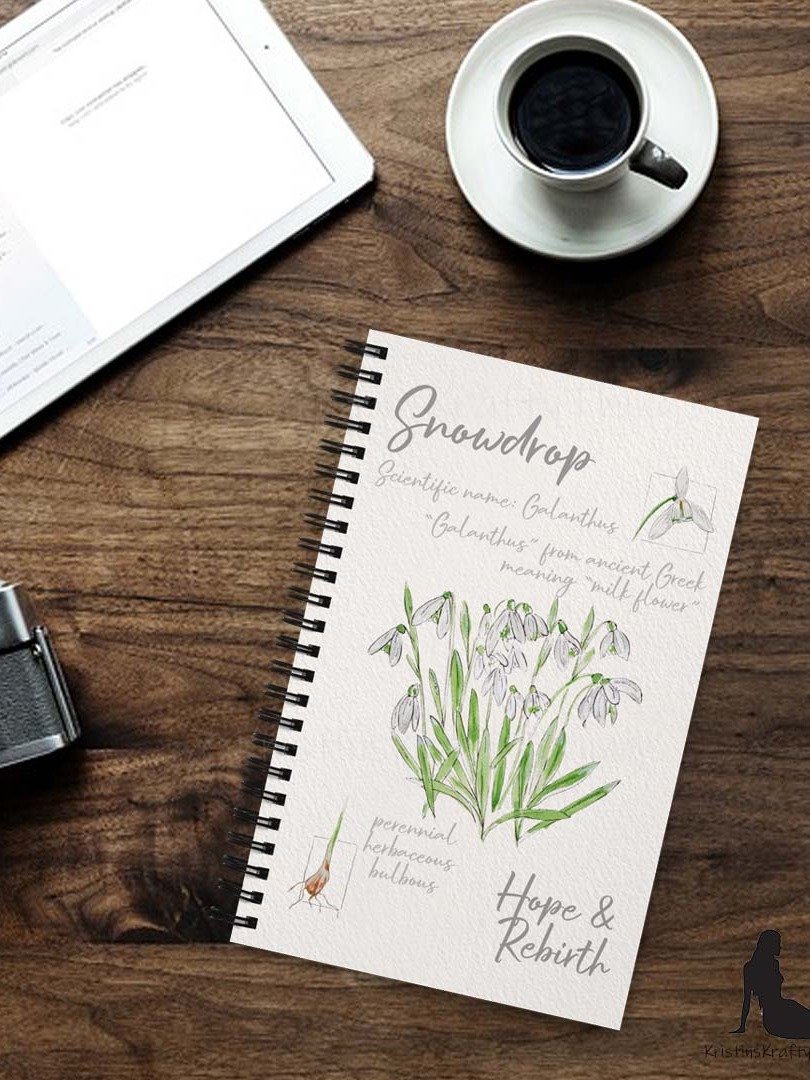 Snowdrop
Scientific name: Galanthus
"Galanthus" from ancient Greek
meaning "milk flower"
perennial
herbaceous
bulbous
Hope &
Rebirth